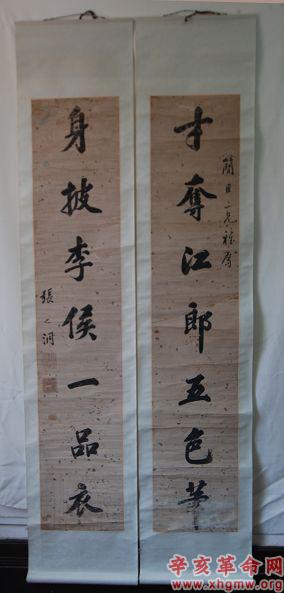 才奪江郎五色筆
身披李侯一品衣
張之洞
辛亥革命网
www.xhgmw.org